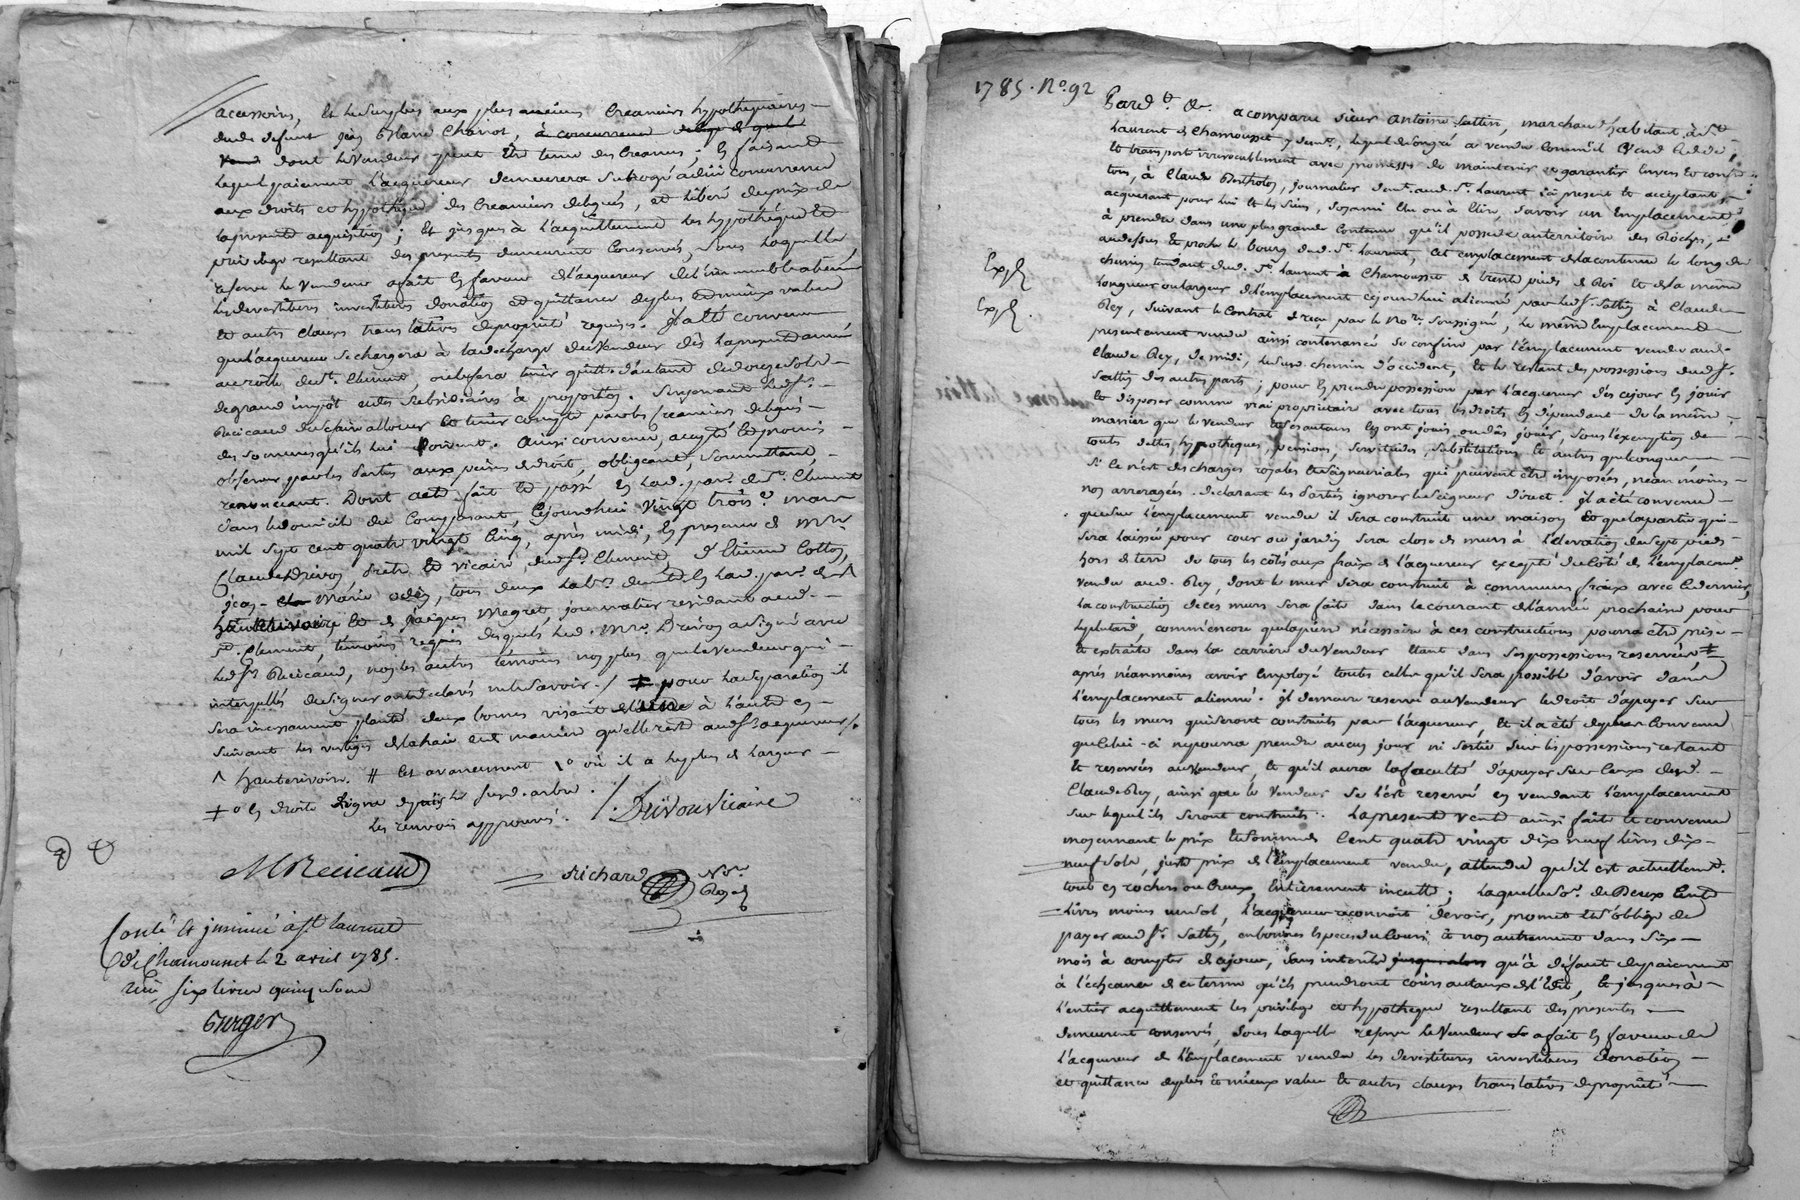 accessoirs, et le surplus aux plus anciens Creanciers hypothequaires
dudit defunt jean Chariot,
dont le Vendeur peut être tenu des Creances; En faisant
lequel paiement l'acquereur demeurera Subrogé à dûë concurrence
aux droits et hypothéque des Creanciers delegués, et libéré du prix de
la presente acquisition; Et jusques à l'acquittement les hypothéque et
privilege resultant des presentes demeurent Conservés, Sous laquelle
reserve le Vendeur a fait En faveur de l'acquereur de l'immeuble aliené
les devestitures investitures donation et quittance de plus et mieux value
et autres clauses translatives de proprieté requises. Il a été convenu
que l'acquereur se chargera à la decharge du Vendeur dès la presente année
au rolle de St. Clement, d'autant de douze sols
de grand impôt et des subsidiaires à proportion.
des sommes qu'ils lui doivent. Ainsi convenu, accepté et promis
observer par les Parties aux peines de droit, obligeant, soumettant,
renonceant. Dont acte fait et passé En lad. par. de St. Clement
dans le domicile du Comparant, Cejourdhui Vingt trois mars
mil Sept cent quatre vingt Cinq, après midi, En presence de Mre.
Claude Drivon Pretre et vicaire dud. St. Clement, d'Etienne Cottos,
jean Marie tous deux hab. en lad. par. de
et de jacques Magret, journalier residant aud.
St. Clement, temoins requis desquels led. Mre. Drivon a signé avec
led. Sr. Recicaud, non les autres temoins non plus que le Vendeur qui
interpellés de signer ont declaré ne le savoir. / ‡ pour la separation il
sera incessamment planté deux bornes visant de l'une à l'autre en
suivant les vestiges de la haie de maniere qu'elle reste aud. Sr. acquereur /.
^ hauterivoire. # Et avancement où il a le plus de largeur
‡° En droite ligne depuis le susd. arbre.
les renvois approuvés. /. Drivon Vicaire
MRecicaud Richard Nre. Royal
Controlé et insinué à St. Laurent
de Chamousset le 2 avril 1785.
reçu six livres quinze sous
Burger
1785. No. 92
Pard.t &c. a comparu sieur Antoine Sattin, marchand habitant à St.
Laurent de Chamousset y demt., lequel de son gré a vendu Comme il Vend cede
et transporte irrevocablement avec promesses de maintenir et garantir Envers et contre
tous, à Claude Bertholon, journalier demt. aud. St. Laurent ici present et acceptant,
acquerant pour lui et les Siens, Son ami Elu ou à Elire, Savoir un Emplacement
à prendre dans une plus grande Contenue qu'il possede au territoire des Roches,
audessus et proche le bourg dud. St. Laurent, Cet emplacement de la contenue le long du
Chemin tendant dud. St. Laurent à Chamousset de trente pieds de Roi et de la meme
longueur ou largeur de l'emplacement cejourdhui aliené par led. Sr. Sattin à Claude
Rey, suivant le Contrat reçu par le Nore. Soussigné, le même Emplacement
presentement vendu ainsi contenancé se confine par l'emplacement vendu aud.
Claude Rey, de midi, le susd. chemin d'occident, et le restant des possessions dud. Sr.
Sattin des autres parts; pour En prendre possession par l'acquereur dès ce jour En jouir
et disposer comme vrai proprietaire avec tous les droits En dépendant de la même
maniere que le Vendeur et ses auteurs En ont joui, ou dû jouir, Sous l'exemption de
toutes dettes, hypotheques, pensions, Servitudes, Substitutions et autres quelconques,
Si ce n'est des charges royales et seigneuriales qui peuvent être imposées, neanmoins
non arreragées. declarant les Parties ignorer le Seigneur direct. Il a été convenu
que sur l'emplacement vendu il sera construit une maison Et que la partie qui
sera laissée pour cour ou jardin sera close de murs à l'elevation de sept pieds
hors de terre de tous les côtés aux fraix de l'acquereur excepté du côté de l'emplacemt.
vendu aud. Rey, dont le mur sera construit à communs fraix avec Ce dernier,
la construction de ces murs sera faite dans le courant de l'année prochaine pour
le plutard, comm'encore que la pierre nécessaire à ces constructions pourra être prise
et extraite dans la carriere du Vendeur Etant dans ses possessions reservées ‡
après néanmoins avoir Employé toutes celles qu'il sera possible d'avoir dans
l'emplacement aliené. Il demeure reservé au Vendeur le droit d'apuyer Sur
tous les murs qui seront construits par l'acquereur, Et il a été de plus Convenu
que Celui-ci ne pourra prendre aucun jour ni sortie Sur les possessions restant
et reservées au Vendeur, et qu'il aura la faculté d'apuyer Sur Ceux dud.
Claude Rey, ainsi que le Vendeur se l'est reservé en vendant l'emplacement
sur lequel ils seront construits. La presente vente ainsi faite et convenue
moyennant le prix et somme de Cent quatre vingt dix neuf livres dix
neuf sols, juste prix de l'Emplacement vendu, attendu qu'il est actuellemt.
tout en rochers ou Creux, Entièrement inculte; laquelle Somme. de Deux Cent
livres moins un sol, l'acquereur reconnoit devoir, promet et s'oblige de
payer aud. Sr. Sattin, en bonnes Especes du Cours et non autrement dans Six
mois à compter de ce jour, Sans interêts jusqu'alors qu'à défaut de paiement
à l'échéance de ce terme qu'ils prendront cours au taux de l'Edit, et jusques à
l'entier acquittement les privilege et hypotheque resultant des presentes
demeurent conservés, Sous laquelle reserve le Vendeur a fait En faveur de
l'acquereur de l'Emplacement vendu les devestitures investitures donation
et quittance de plus et mieux value et autres clauses translatives de proprieté